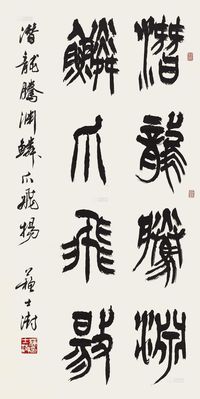 潛龍騰淵
鱗爪飛揚
潛龍騰淵鱗爪飛揚 蘇士澍